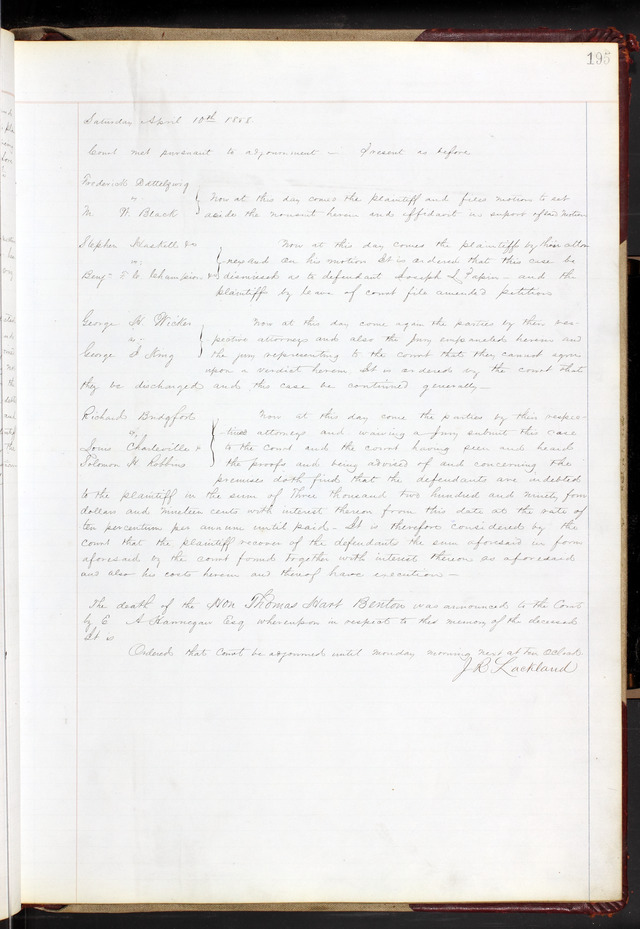 195
Saturday April 10th 1858
Court met pursuant to adjournment — Present as before
Frederick Dettelzwig
vs
M. W. Black
Now at this day comes the plaintiff and files motion to set
aside the nonsuit herein and affidavit in suport of said motion
Stephen Haskell &c
vs
Benj F W Champion &c
Now at this day comes the plaintiffs by their attor
neys and on his motion It is ordered that this case be
dismissed as to defendant Joseph L Papin — and the
plaintiff by leave of court file amended petition
George H. Wicker
vs
George S King
Now at this day come again the parties by their res-
pective attorneys and also the jury empaneled herein and
the jury representing to the court that they cannot agree
upon a verdict herein It is ordered by the court that
they be discharged and this case be continued generally —
Richard Bridgfort
vs
Louis Charleville &
Solomon H Robbins
Now at this day come the parties by their respec-
tive attorneys and waiving a jury submit this case
to the court and the court having seen and heard
the proofs and being advised of and concerning the
premises doth find that the defendants are indebted
to the plaintiff in the sum of three thousand two hundred and ninety four
dollars and nineteen cents with interest thereon from this date at the rate of
ten percentum per annum until paid — It is therefore considered by the
court that the plaintiff recover of the defendants the sum aforesaid in form
aforesaid by the court found together with interest thereon as aforesaid
and also his costs herein and thereof have execution —
The death of the Hon Thomas Hart Benton was announced to the Court
by E A Hannegan Esq whereupon in respect to the memory of the deceased
It is
Ordered that Court be adjourned until monday morning next at ten OClock
J R Lackland